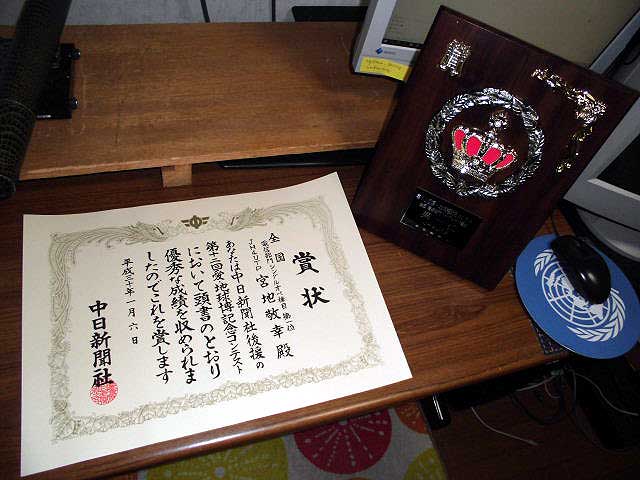 賞状
全国
電信部門 シングルオペ種目 第一位
JH2UTP 宮地敬幸殿
あなたは中日新聞社後援の
第十二回愛・地球博記念コンテスト
において頭書のとおり
優秀な成績を収められま
したのでこれを賞します
平成三十年一月六日
中日新聞社
賞